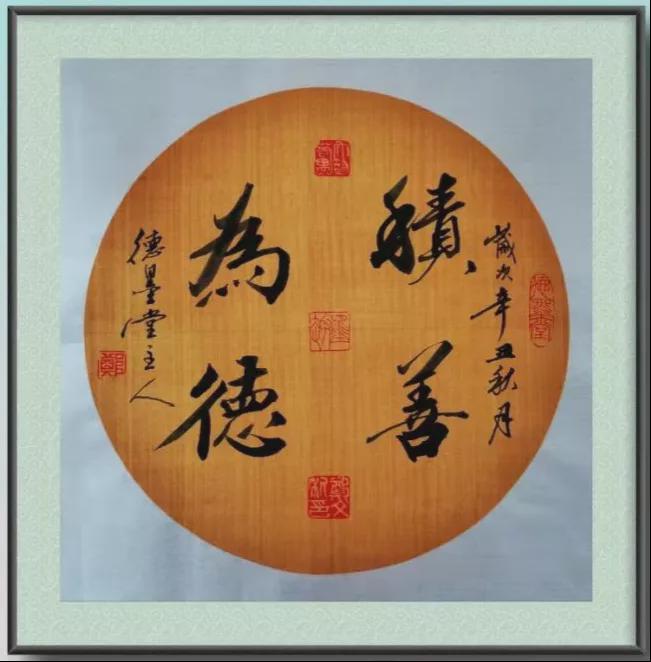 歲次辛丑秋月
積善
為德
德墨堂主人
鄭